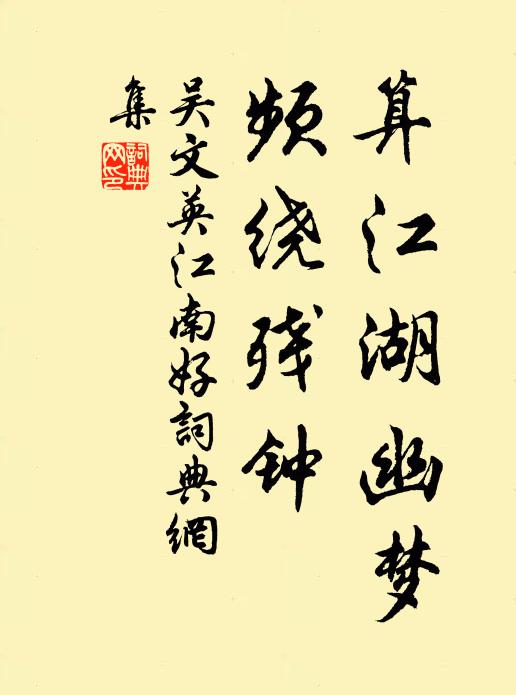 算江湖幽梦
频绕残钟
吴文英江南好詞典網
集
詞典
网印